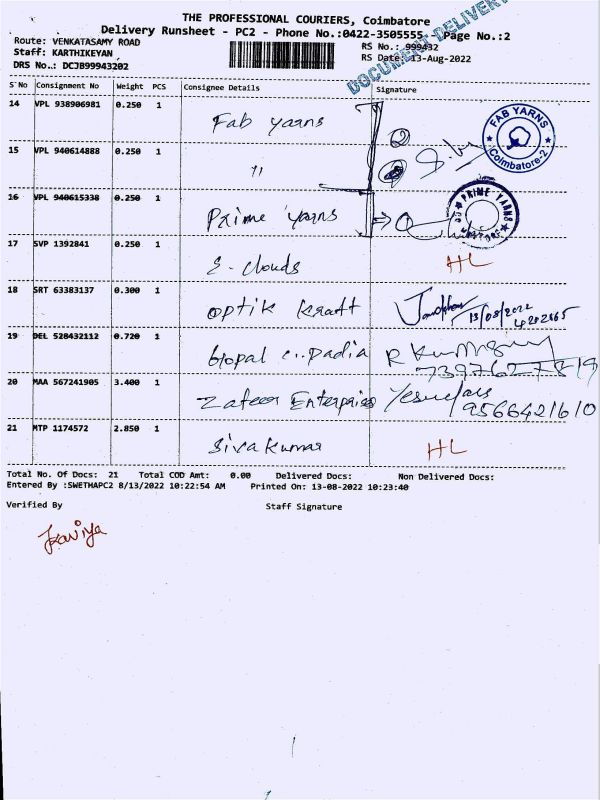 THE PROFESSIONAL COURIERS, Coimbatore
Delivery Runsheet - PC2 - Phone No.:0422-3505555 Page No.:2
DOCUMENT DELIVERY
Route: VENKATASAMY ROAD RS No.: 999432
Staff: KARTHIKEYAN RS Date: 13-Aug-2022
DRS No..: DCJB99943202
S No Consignment No Weight PCS Consignee Details Signature
14 VPL 938906981 0.250 1 Fab yarns
FAB YARNS Coimbatore-2
15 VPL 940614888 0.250 1 "
16 VPL 940615338 0.250 1 Prime yarns
PRIME YARNS
17 SVP 1392841 0.250 1 S-clouds HL
18 SRT 63383137 0.300 1 optik kraft 13/08/2022
19 DEL 528432112 0.720 1 Gopal padia
20 MAA 567241905 3.400 1 Zafeer Enterprises 9566421610
21 MTP 1174572 2.850 1 Sivakumar HL
Total No. Of Docs: 21 Total COD Amt: 0.00 Delivered Docs: Non Delivered Docs:
Entered By :SWETHAPC2 8/13/2022 10:22:54 AM Printed On: 13-08-2022 10:23:40
Verified By Staff Signature